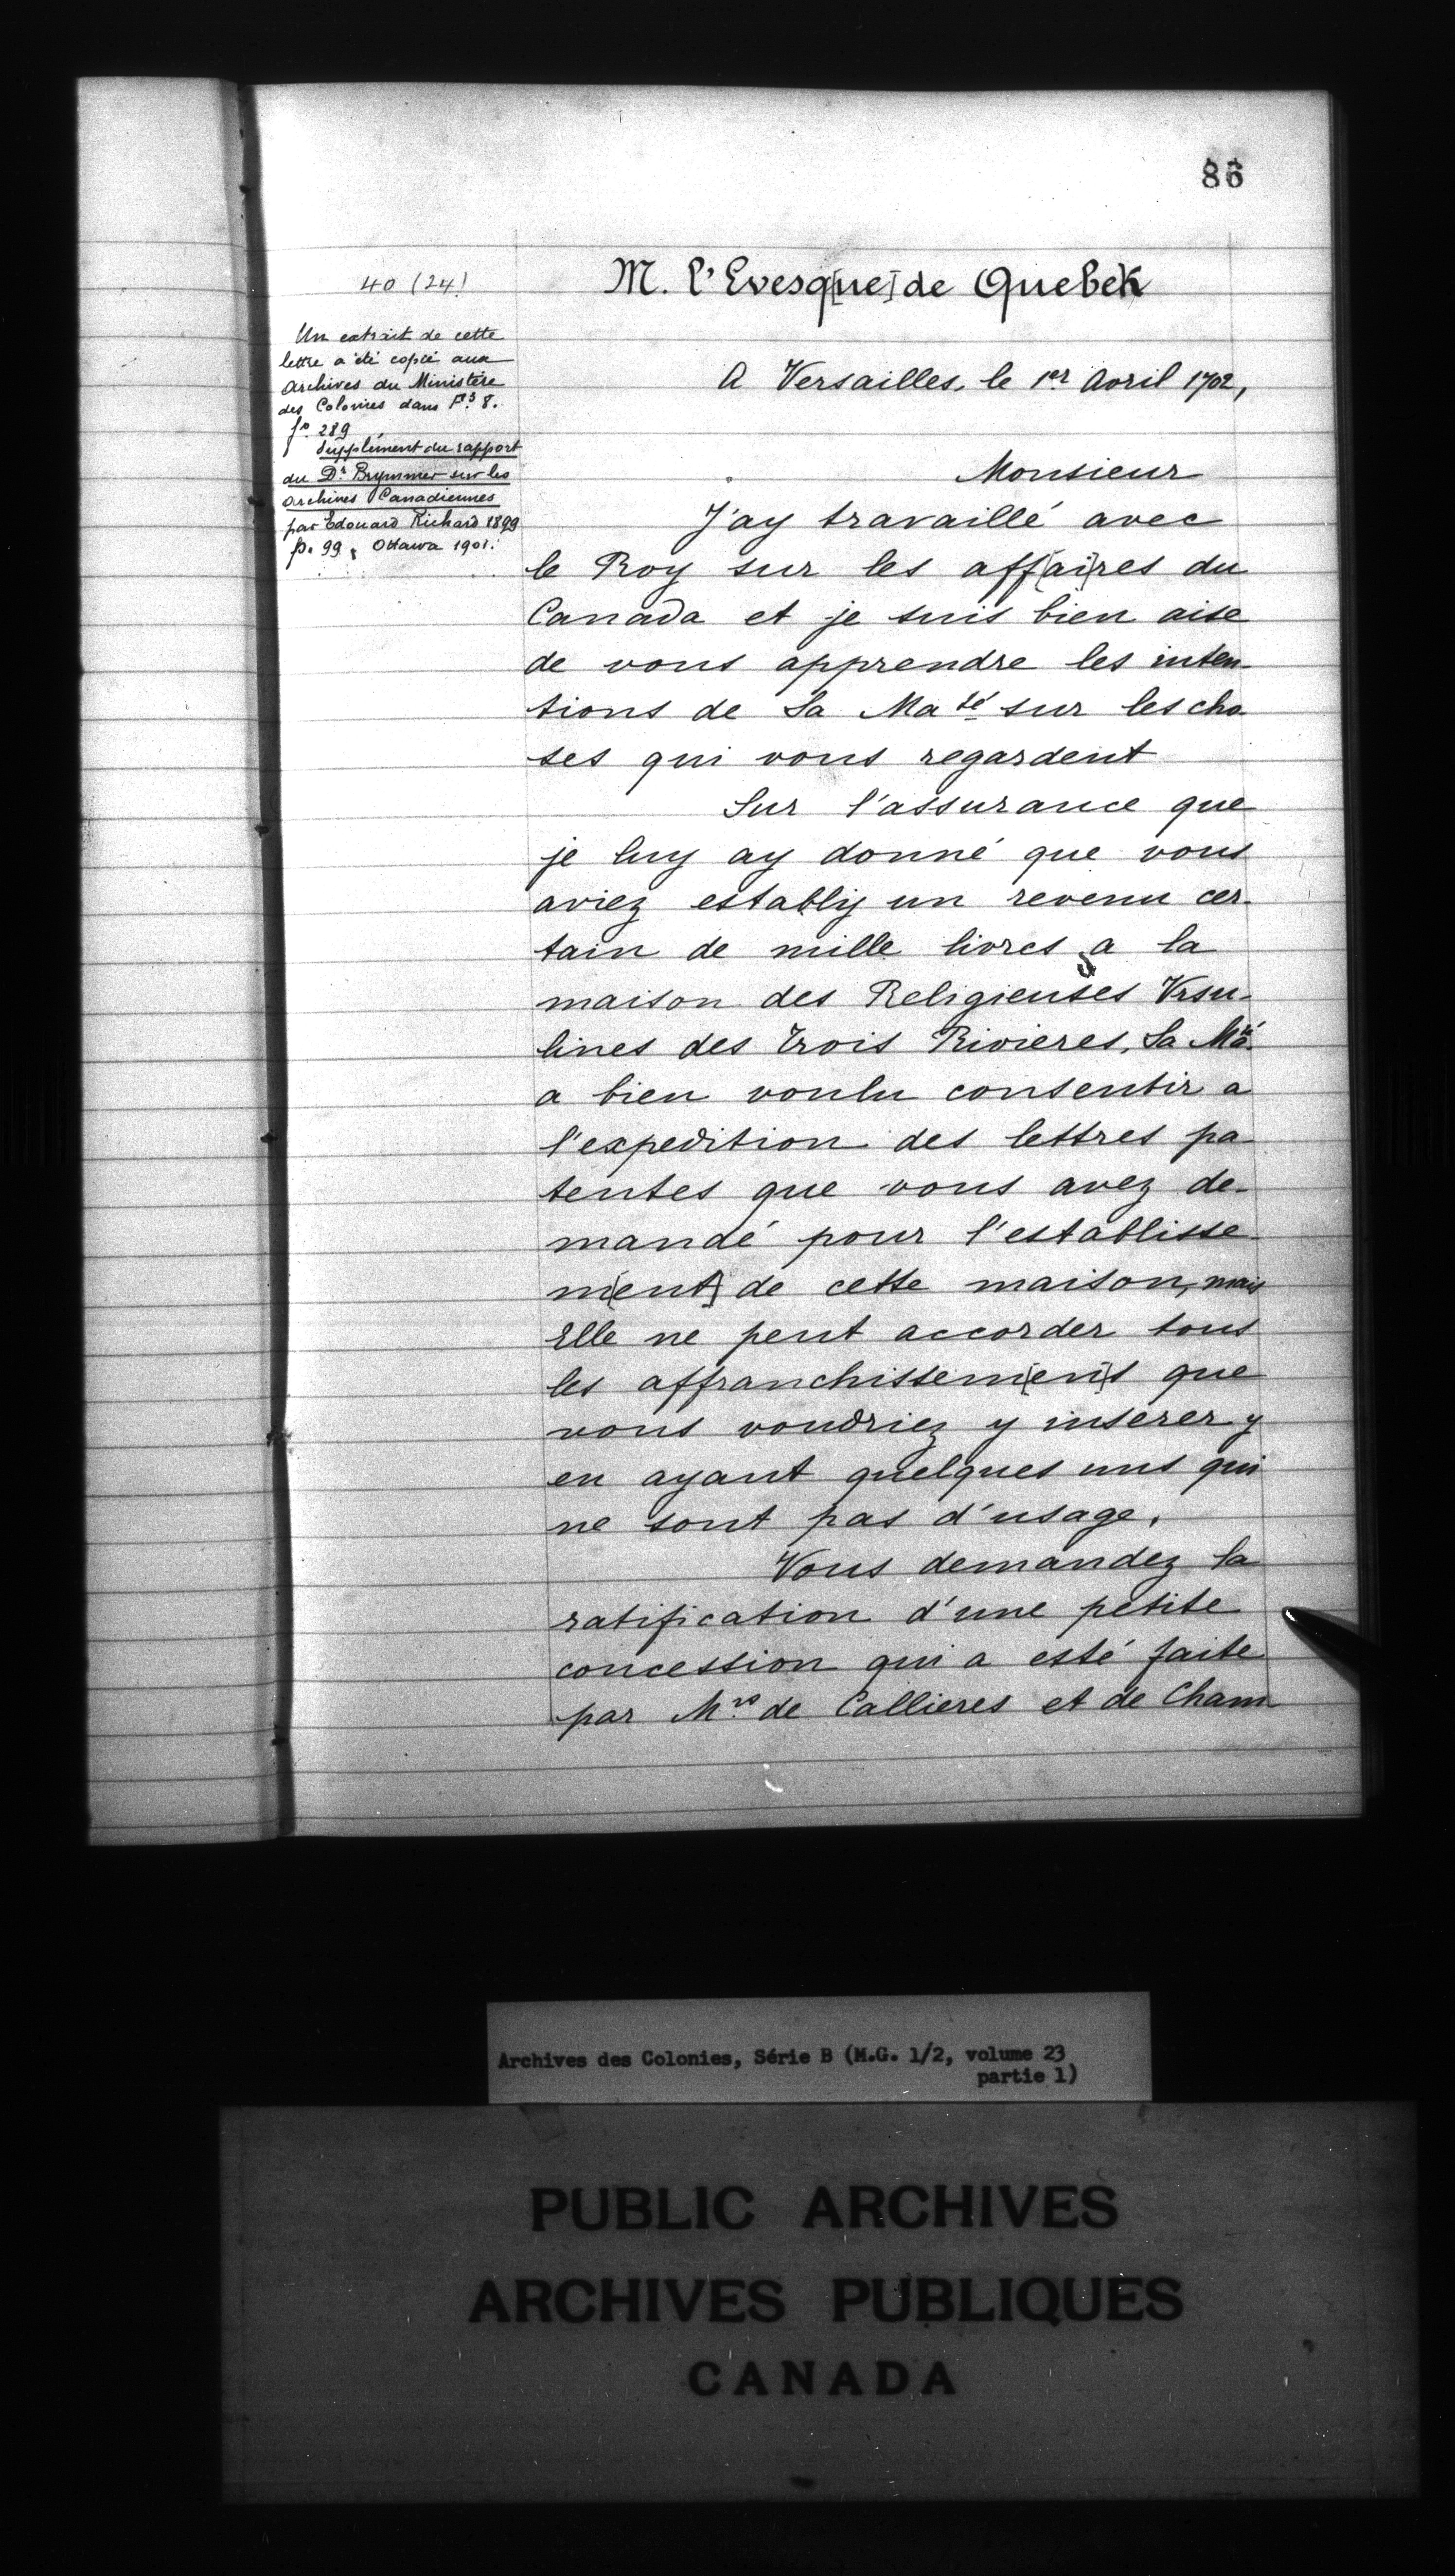 86
M. l'Evesq[ue] de Quebek
40 (24)
Un extrait de cette
lettre a été copié aux
Archives du Ministère
des Colonies dans F.3 8.
fo 289
Supplément du rapport
du Dr Brymner sur les
archives Canadiennes
par Edouard Richard 1899
p. 99, Ottawa 1901.
A Versailles, le 1er Avril 1702,
Monsieur
J'ay travaillé avec
le Roy sur les aff[ai]res du
Canada et je suis bien aise
de vous apprendre les inten-
tions de Sa Maté sur les cho-
ses qui vous regardent
Sur l'assurance que
je luy ay donné que vous
aviez estably un revenu cer-
tain de mille livres a la
maison des Religieuses Vrsu-
lines des trois Rivieres, Sa Maté
a bien voulu consentir a
l'expedition des lettres pa-
tentes que vous avez de-
mandé pour l'establisse-
m[ent] de cette maison, mais
Elle ne peut accorder tous
les affranchissem[en]s que
vous voudriez y inserer y
en ayant quelques uns qui
ne sont pas d'usage.
Vous demandez la
ratification d'une petite
concession qui a esté faite
par Mrs de Callieres et de Cham-
Archives des Colonies, Série B (M.G. 1/2, volume 23
partie 1)
PUBLIC ARCHIVES
ARCHIVES PUBLIQUES
CANADA